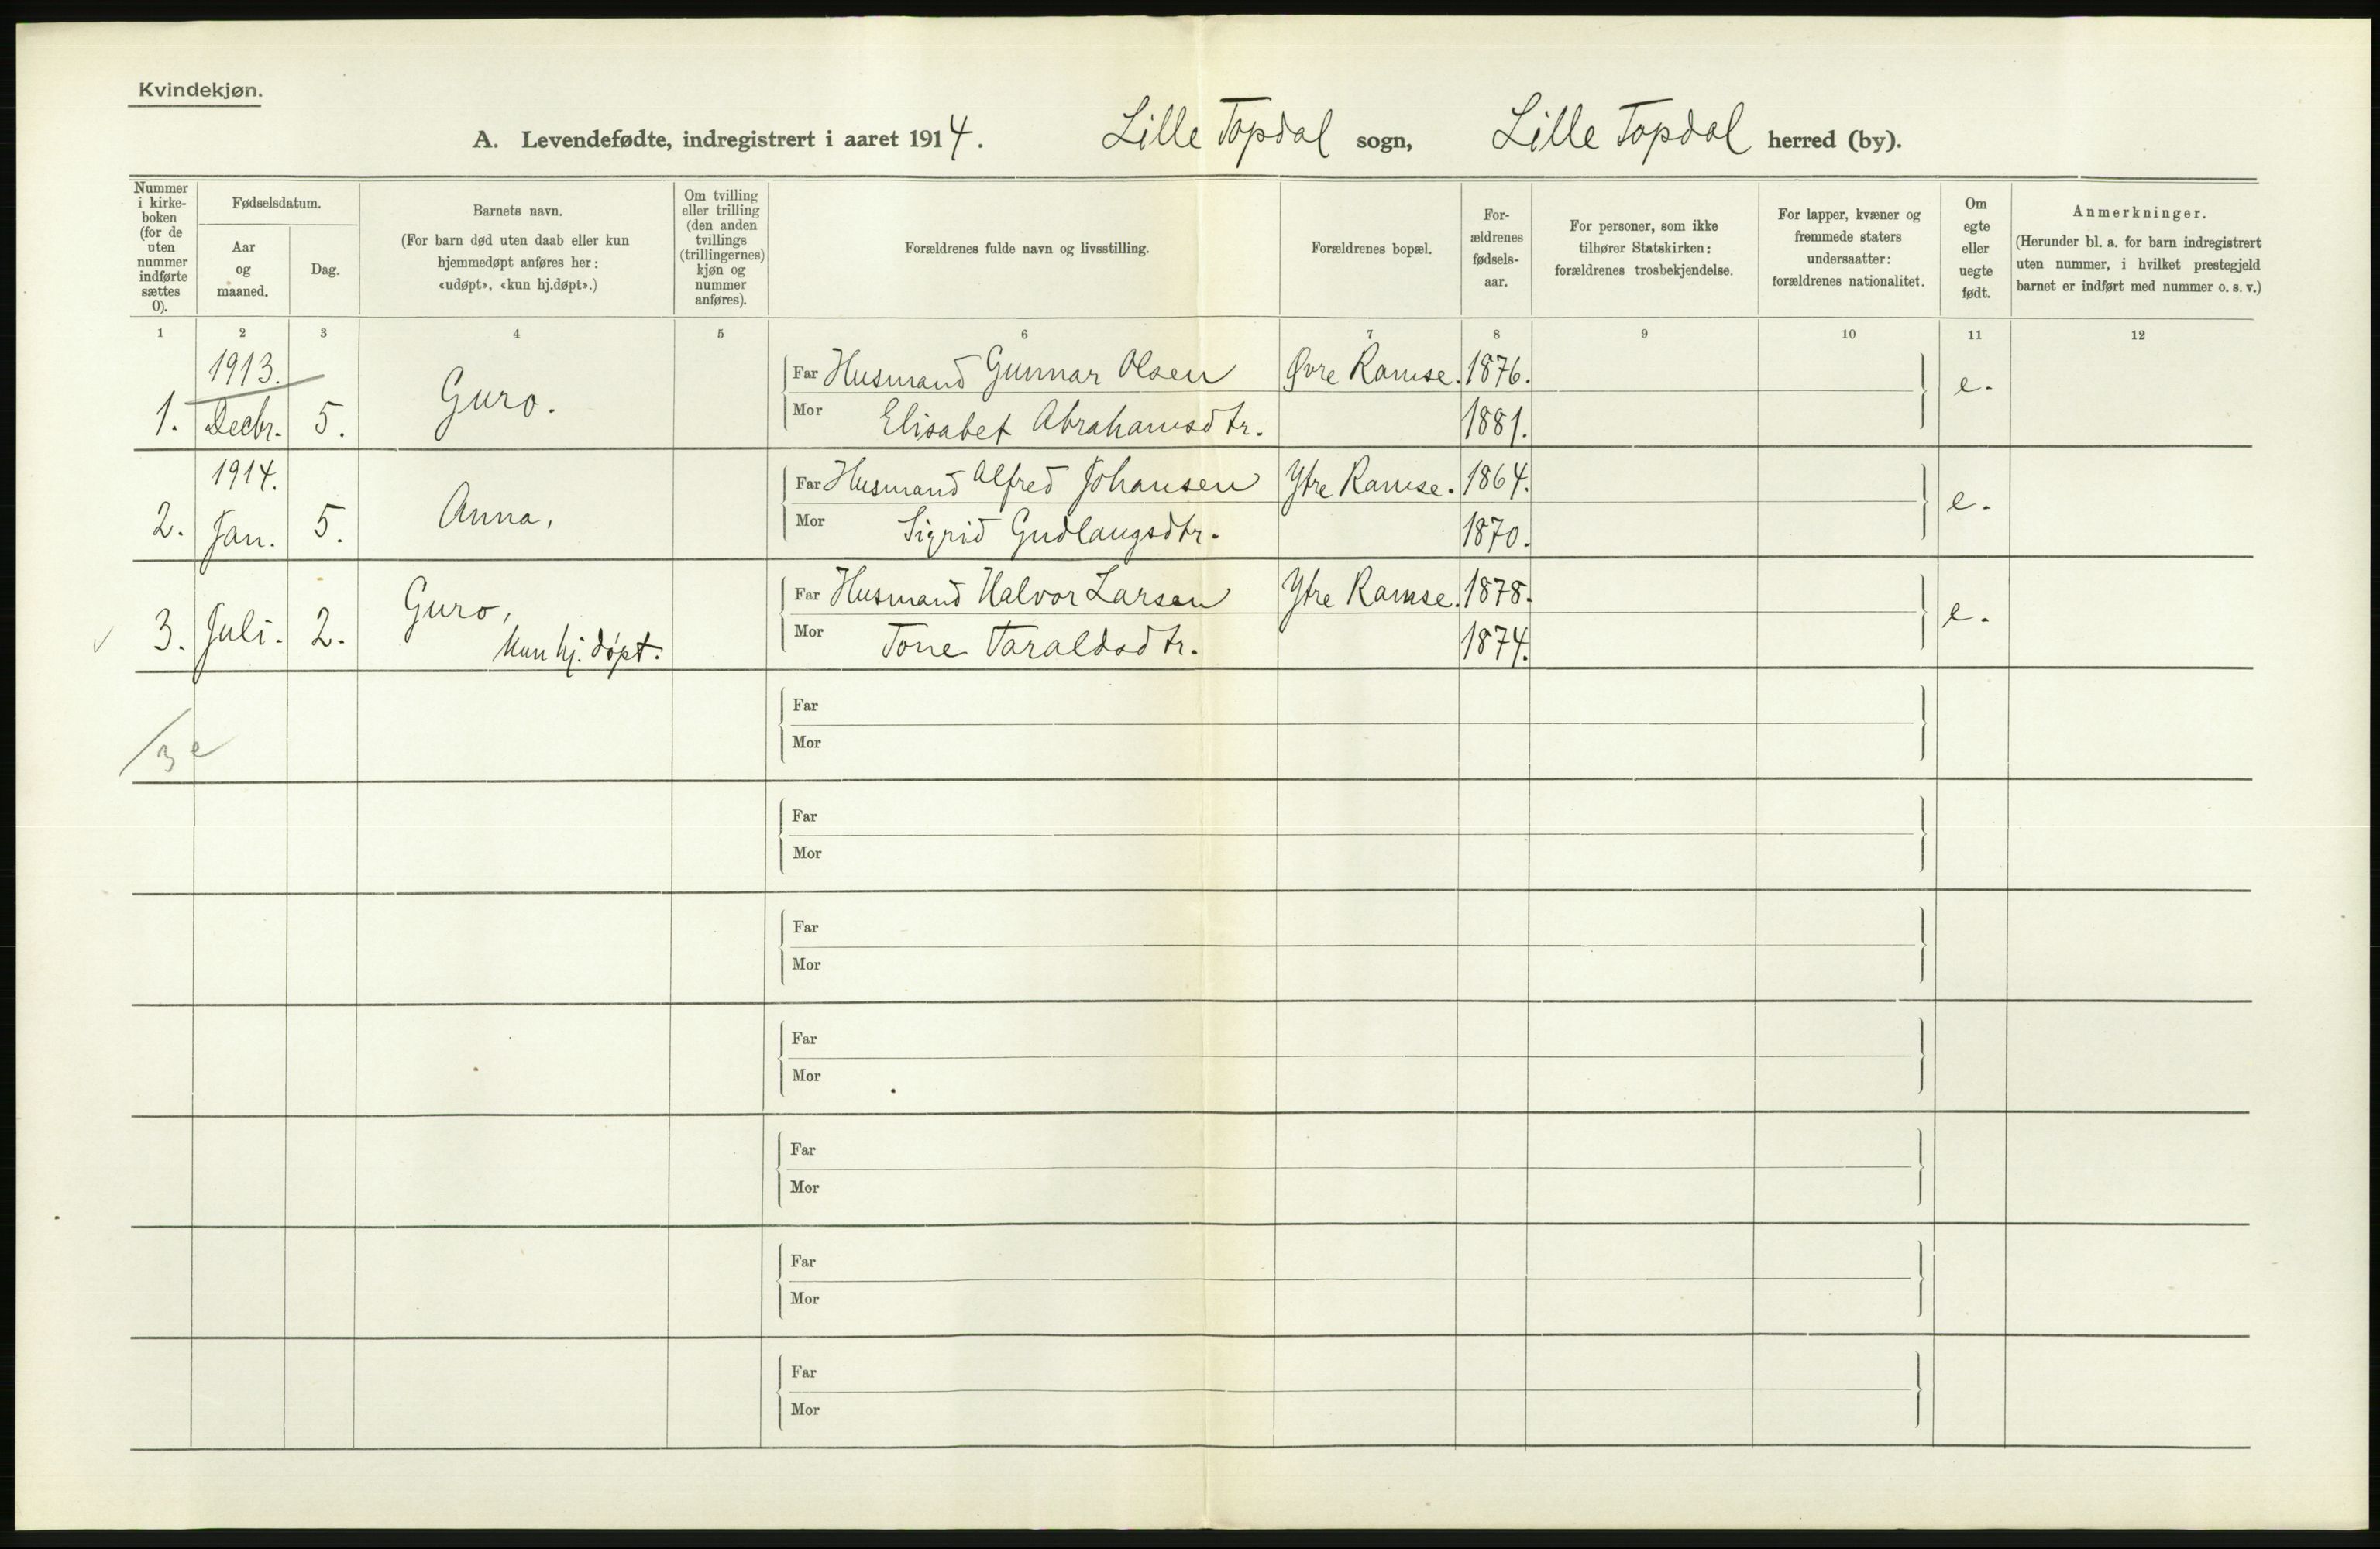 Kvindekjøn.
A. Levendefødte, indregistrert i aaret 1914. Lille Topdal sogn, Lille Topdal herred (by).
Nummer i kirke-boken (for de uten nummer indførte sættes 0).
Fødselsdatum.
Aar og maaned.
Dag.
Barnets navn.
(For barn død uten daab eller kun hjemmedøpt anføres her: «udøpt», «kun hj.døpt».)
Om tvilling eller trilling (den anden tvillings (trillingernes) kjøn og nummer anføres).
Forældrenes fulde navn og livsstilling.
Forældrenes bopæl.
For-ældrenes fødsels-aar.
For personer, som ikke tilhører Statskirken: forældrenes trosbekjendelse.
For lapper, kvæner og fremmede staters undersaatter: forældrenes nationalitet.
Om egte eller uegte født.
Anmerkninger.
(Herunder bl. a. for barn indregistrert uten nummer, i hvilket prestegjeld barnet er indført med nummer o. s. v.)
1 2 3 4 5 6 7 8 9 10 11 12
1913.
1. Decbr. 5. Guro.
Far Husmand Gunnar Olsen Øvre Ramse. 1876. e.
Mor Elisabet Abrahamsdtr. 1881.
1914.
2. Jan. 5. Anna,
Far Husmand Alfred Johansen Ytre Ramse. 1864. e.
Mor Sigrid Gudlaugsdtr. 1870.
3. Juli. 2. Guro,
kun hj. døpt.
Far Husmand Halvor Larsen Ytre Ramse. 1878. e.
Mor Tone Taraldsdtr. 1874.
3 e
Far
Mor
Far
Mor
Far
Mor
Far
Mor
Far
Mor
Far
Mor
Far
Mor